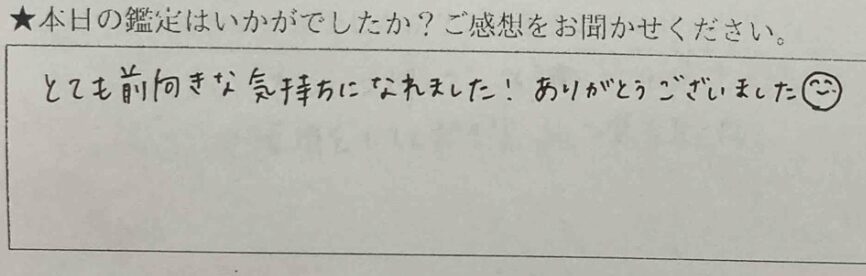 ★本日の鑑定はいかがでしたか？ご感想をお聞かせください。
とても前向きな気持ちになれました！ありがとうございました😊